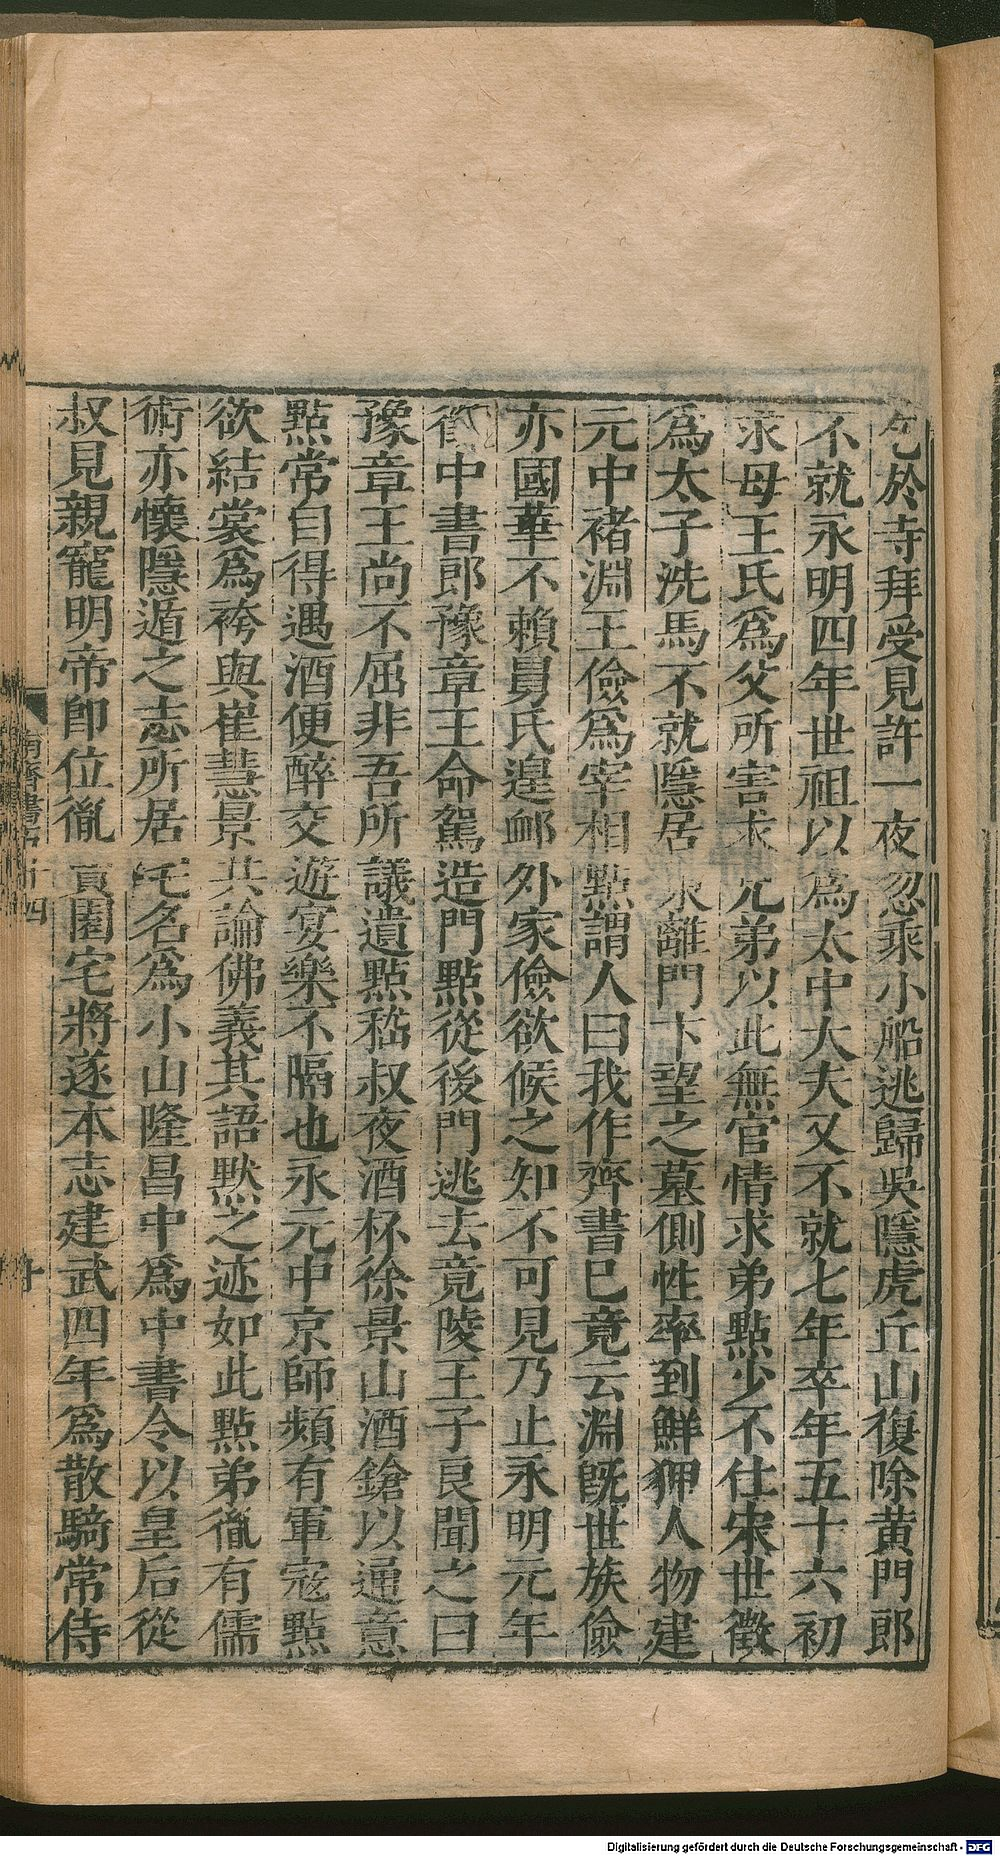 乞於寺拜受見許一夜忽乘小船逃歸吳隱虎丘山復除黃門郎
不就永明四年世祖以爲太中大夫又不就七年卒年五十六初
求母王氏爲父所害求兄弟以此無官情求弟點少不仕宋世徵
爲太子洗馬不就隱居東離門卞望之墓側性率到鮮狎人物建
元中褚淵王儉爲宰相點謂人曰我作齊書已竟云淵旣世族儉
亦國華不賴舅氏遑卹外家儉欲候之知不可見乃止永明元年
徵中書郎豫章王命駕造門點從後門逃去竟陵王子良聞之曰
豫章王尚不屈非吾所議遺點嵇叔夜酒杯徐景山酒鎗以通意
點常自得遇酒便醉交遊宴樂不隔也永元中京師頻有軍寇點
欲結裳爲袴與崔慧景共論佛義其語默之迹如此點弟胤有儒
術亦懷隱遁之志所居宅名爲小山隆昌中爲中書令以皇后從
叔見親寵明帝卽位胤賣園宅將遂本志建武四年爲散騎常侍
南齊書五十四
十
Digitalisierung gefördert durch die Deutsche Forschungsgemeinschaft - DFG